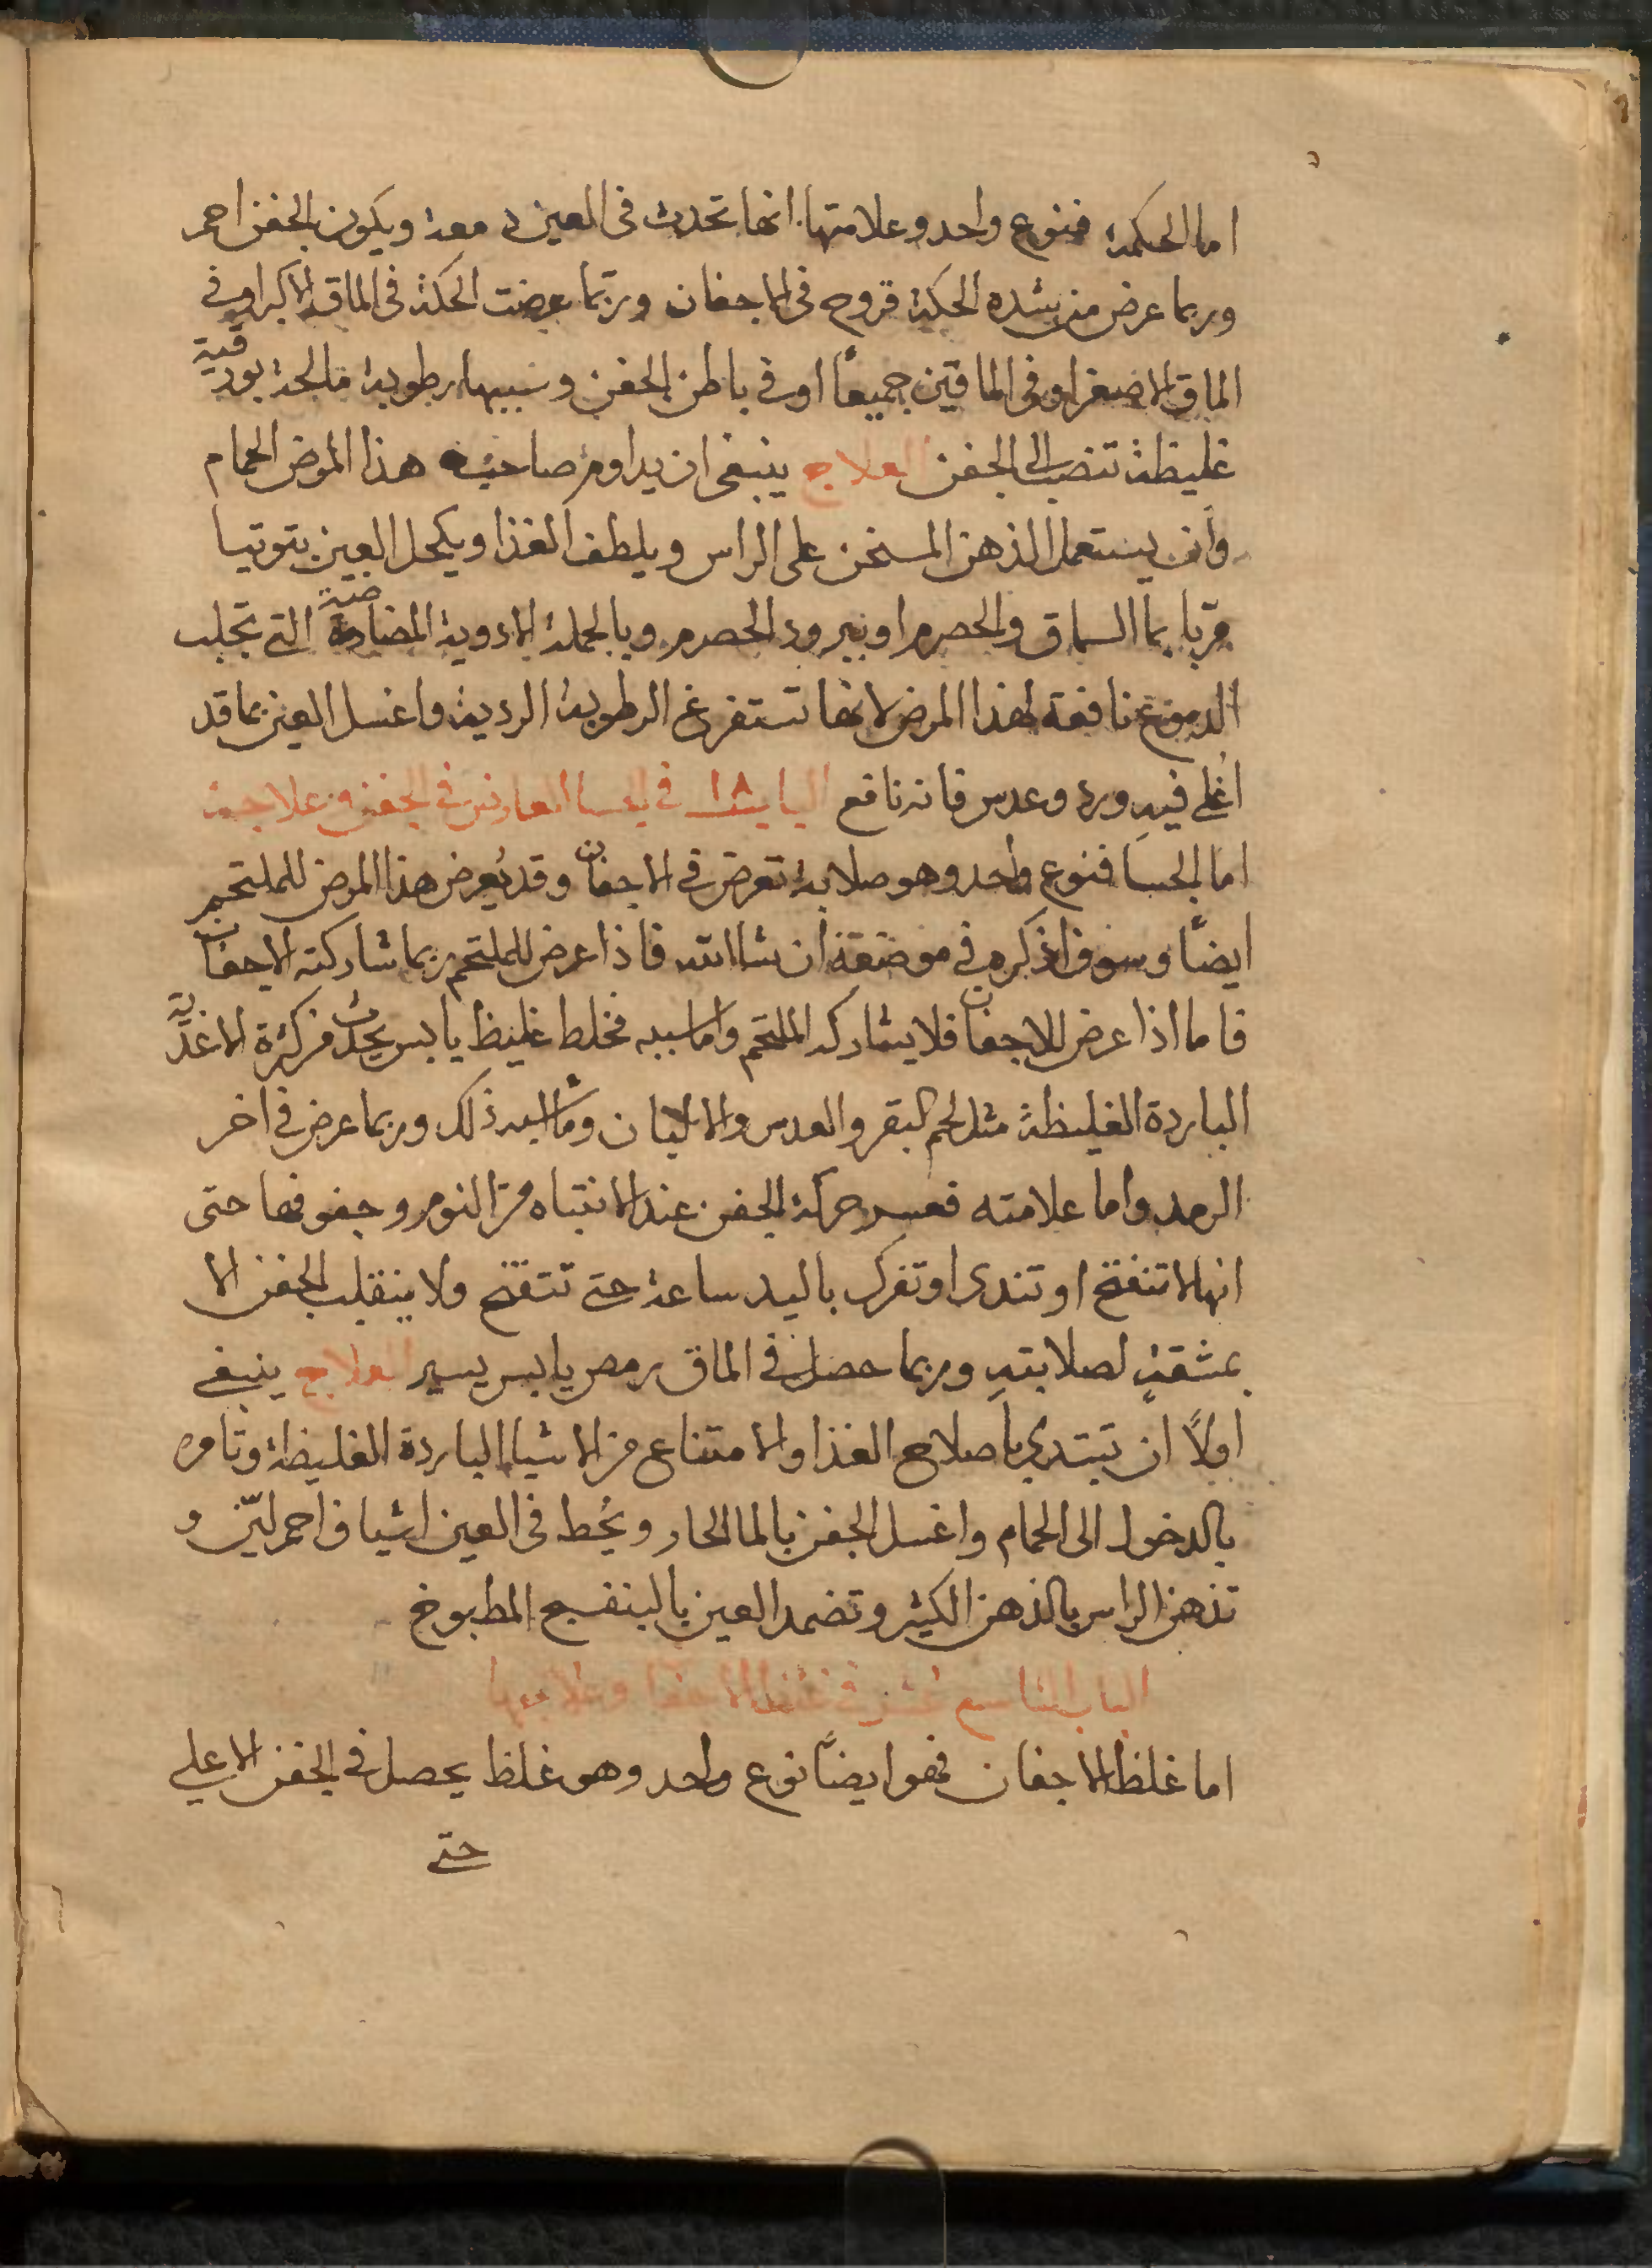 اما الحكة فنوع واحد وعلامتها انها تحدث فى العين دمعة ويكون الجفن احمر
وربما عرض من شده الحكة قروح فى الاجفان وربّما عرضت الحكة فى الماق الاكبر او فى
الماق الاصغر او فى الماقين جميعاً او فى باطن الجفن وسببها رطوبة مالحة بورقية
غليظة تنصب الى الجفن العلاج ينبغى ان يداوم صاحب هذا المرض الحمام
وان يستعمل الذهن المسخن على الراس ويلطف الغذا ويكحل العين بتوتيا
مربّا بما السماق والحصرم او ببرود الحصرم وبالجملة الادوية التى تجلب
الدموع نافعة لهذا المرض لانها تستفرغ الرطوبة الردية واغسل العين بما قد
اُغلى فيه ورد وعدس فانه نافع فى الجسا العارض فى الجفن وعلاجه
اما الجسا فنوع واحد وهو صلابة تعرض فى الاجفان وقد يُعرض هذا المرض للملتحم
ايضًا وسوف اذكره فى موضعه ان شا الله فاذا عرض للملتحم ربما شاركته الاجفان
فاما اذا عرض للاجفان فلا يشاركه الملتحم واما سببه فخلط غليظ يابس يحدث من كثرة الاغذية
الباردة الغليظة مثل لحم البقر والعدس والالبان وما اشبه ذلك وربما عرض فى اخر
الرمد واما علامته فعسر حركة الجفن عند الانتباه من النوم وجفوفها حتى
انها لا تنفتح او تندى او تفرك باليد ساعة حتى تتفتح ولا ينقلب الجفن الا
بمشقةٍ لصلابتهِ وربما حصل فى الماق رمص يابس يسير العلاج ينبغى
اولاً ان تبتدي باصلاح الغذا والامتناع من الاشيا الباردة الغليظة وتامره
بالدخول الى الحمام واغسل الجفن بالما الحار ويُحط فى العين اشياف احمر ليّن و
تذهن الراس بالذهن الكثير وتضمد العين بالبنفسج المطبوخ
الباب التاسع عشر فى غلظ الاجفان وعلاجها
اما غلظ الاجفان فهو ايضاً نوع واحد وهو غلظ يحصل فى الجفن الاعلى
حتى